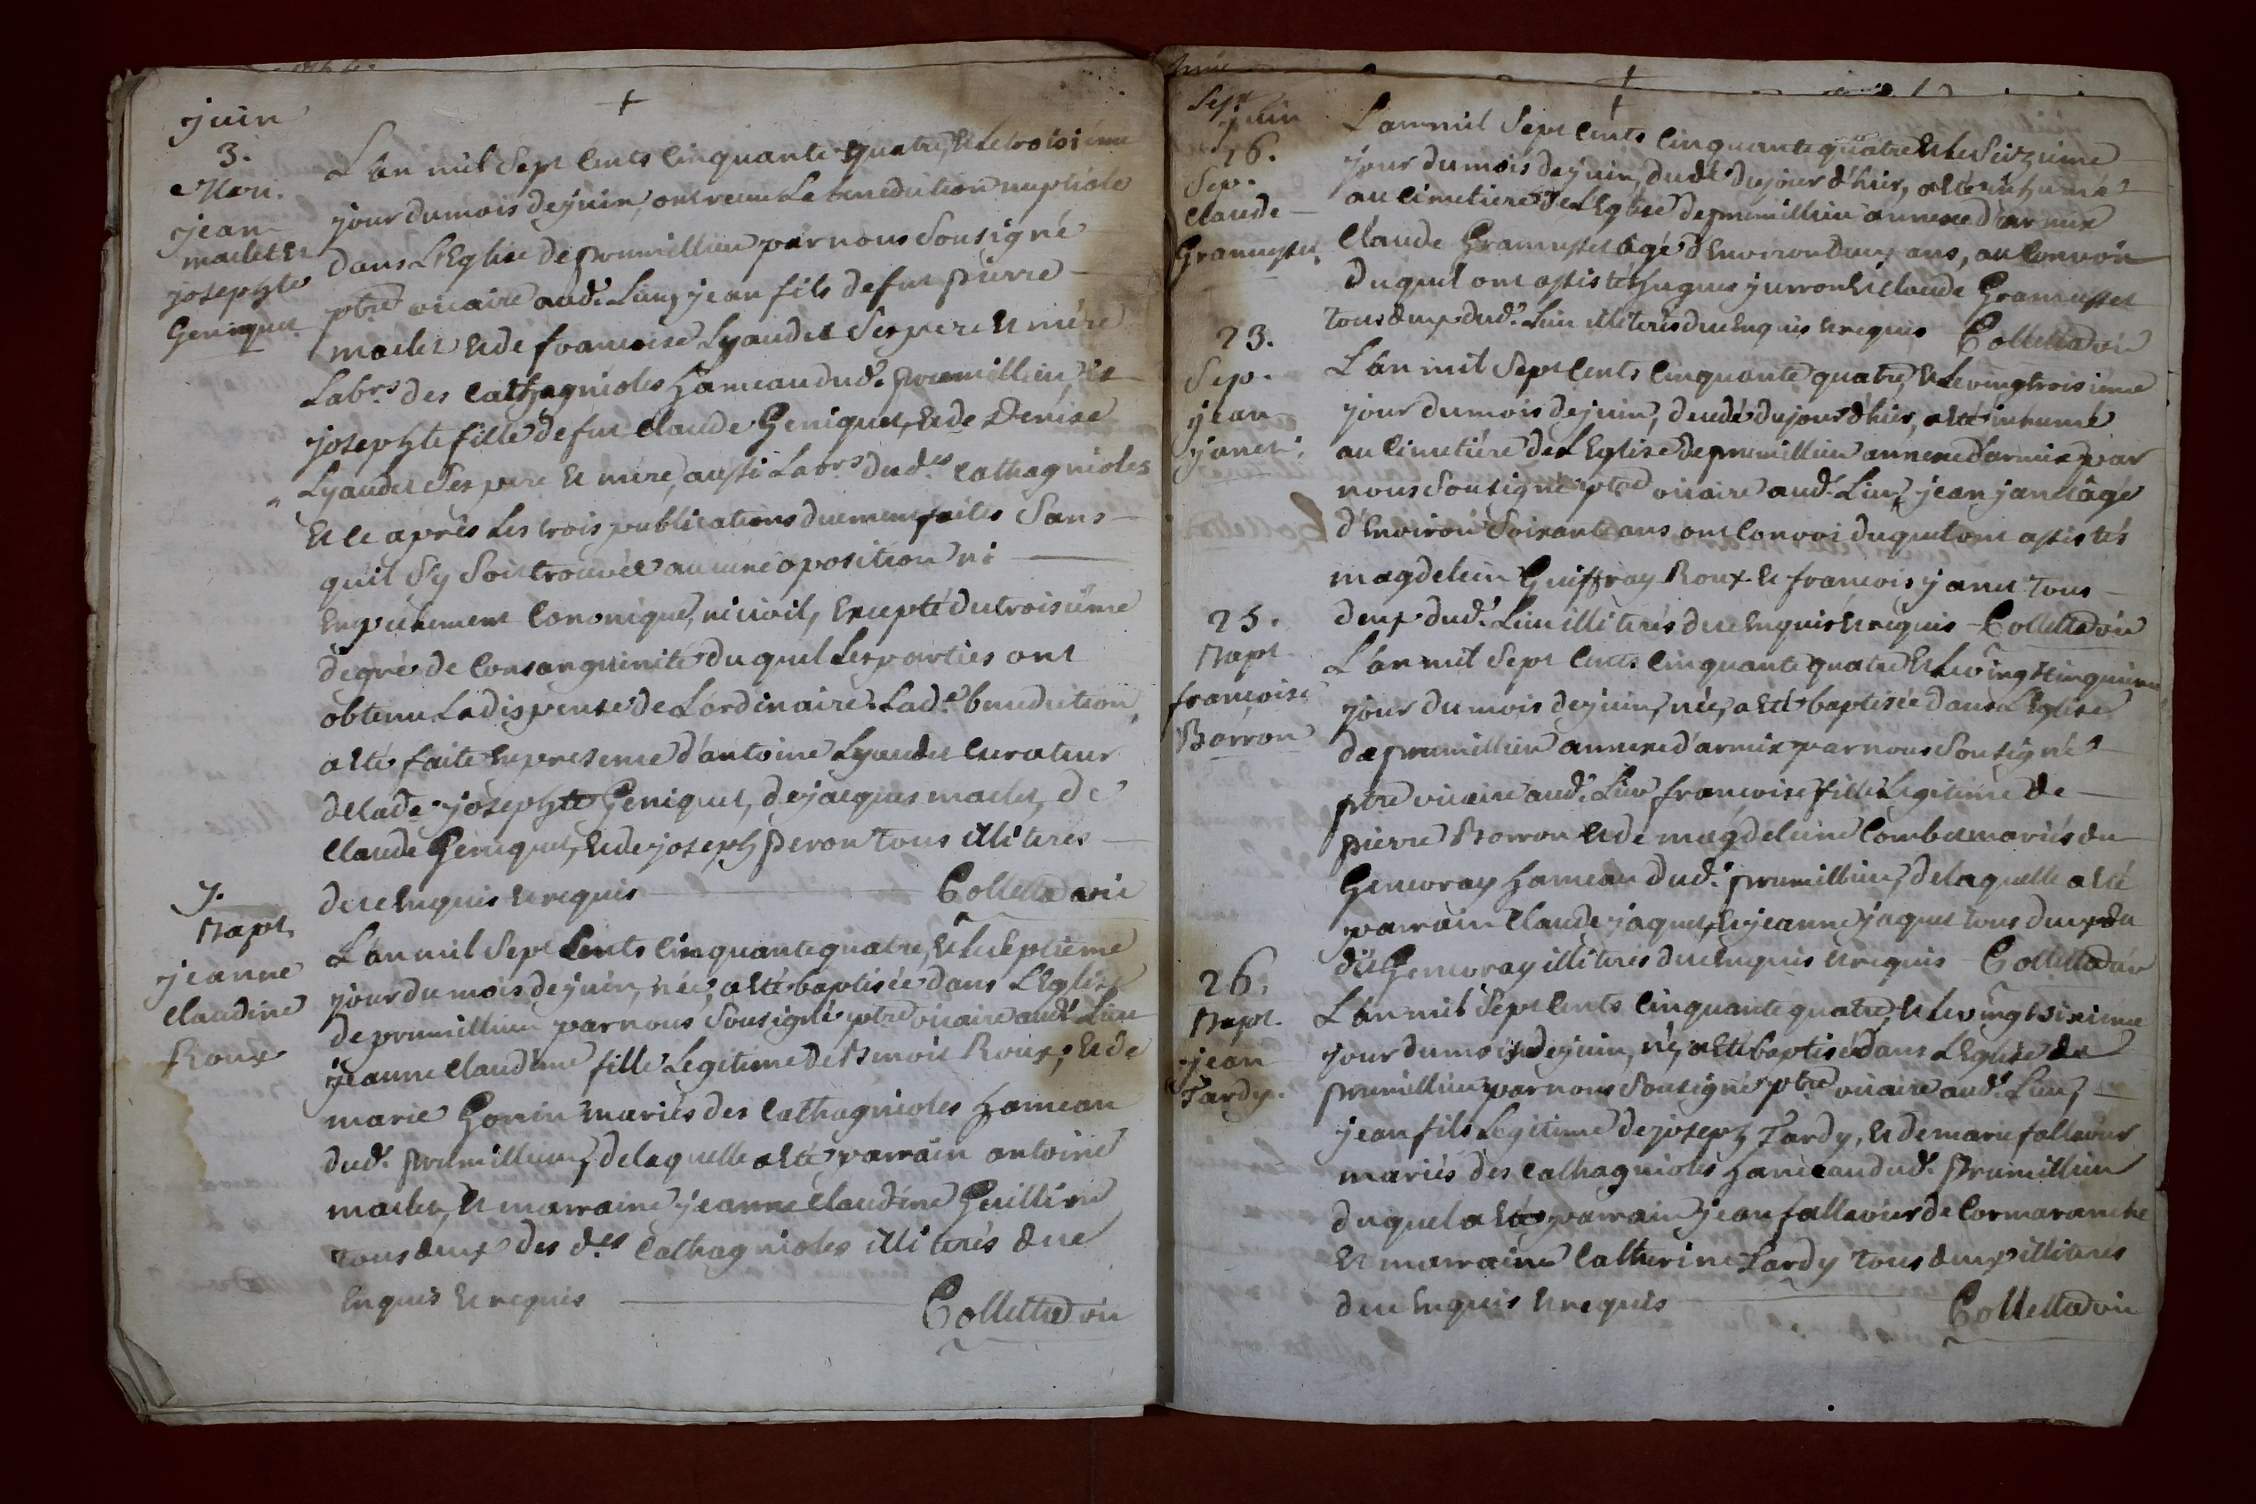 juin
3.
Mari.
jean
maclet et
josephte
Geniquet
L'an mil Sept Cents Cinquante quatre, et le troisieme
jour du mois de juin, ont recu La benediction nuptiale
dans L'Eglise de prumillieu par nous Sousigné
ptre vicaire aud. Lieu, jean fils de fut pierre
maclet et de francoise Lyaudet Ses pere et mére
Labrs des Cathagnioles hameau dud. prumillieu, et
josephte fille de fut Claude Geniquet, et de Denise
Lyaudet Ses pere et mére, aussi Labrs dud.es Cathagnioles
Et ce aprés Les trois publications duement faites Sans
quil S'y Soit trouvée aucune oposition ni
Empechement Canonique, ni civil, Excepté du troisiéme
degré de Consanguinité du quel Les parties ont
obtenu La dispense de L'ordinaire. Lad.e benediction
a eté faite en presence d'antoine Lyaudet Curateur
de lade. josephte Geniquet, de jacques maclet, de
Claude Geniquet, et de joseph peron tous illiteres
due enquis et requis Colletta vic
7.
Bapt.
jeanne
Claudine
Roux
L'an mil Sept Cents Cinquante quatre, et le Septieme
jour du mois de juin, née, a eté baptisée dans L'Eglise
de prumillieu par nous Sousigné ptre vicaire aud. Lieu
jeanne Claudine fille Legitime de Benoit Roux, et de
marie Gonin mariés des Cathagnioles hameau
dud. prumillieu, de laquelle a eté parrain antoine
maclet, et marraine jeanne Claudine Guilline
tous deux des d.es Cathagnioles illiterés due
Enquis et requis Colletta vic
Sept
juin
16.
Sep.
Claude
Gramusset
L'an mil Sept Cents Cinquante quatre et le Seizieme
jour du mois de juin, dudé du jour d'hier, a eté inhumé
au Cimetiere de L'Eglise de prumillieu annexe d'armix
Claude Gramusset âgé d'Environ deux ans, au Convoi
duquel ont assisté hugues jurron et Claude Gramusset
tous deux dud. Lieu illiterés due enquis et requis Colletta vic
23.
Sep.
jean
janet.
L'an mil Sept Cents Cinquante quatre, et le vingt troisieme
jour du mois de juin, decedé du jour d'hier, a eté inhumé
au Cimetiére de L'Eglise de prumillieu annexe d'armix par
nous Sousigné ptre vicaire aud. Lieu jean janet âgé
d'Environ Soixante ans, au Convoi duquel ont assistés
magdelein Guiffray Roux et francois janet tous
deux dud. Lieu illiterés due enquis et requis Colletta vic
25.
Bapt
francoise
Borron
L'an mil Sept Cents Cinquante quatre et le vingt cinquieme
jour du mois de juin, née, a eté baptisée dans L'Eglise
de prumillieu annexe d'armix par nous Sousigné
ptre vicaire aud. Lieu francoise fille Legitime de
pierre Borron et de magdeleine Combet mariés du
Genevray hameau dud. prumillieu, de laquelle a eté
parrain Claude jaquet, et jeanne jaquet tous deux du
dit Genevray illiteres due enquis et requis Colletta vic
26.
Bapt.
jean
Tardy.
L'an mil Sept Cents Cinquante quatre, et le vingt sixieme
jour du mois de juin, né, a eté baptisé dans L'Eglise de
prumillieu par nous Sousigné ptre vicaire aud. Lieu,
jean fils Legitime de joseph Tardy, et de marie fallavier
mariés des Cathagnioles hameau dud. prumillieu
duquel a eté parrain jean fallavier de Cormaranche
et marraine Catherine Tardy tous deux illiterés
due enquis et requis Colletta vic